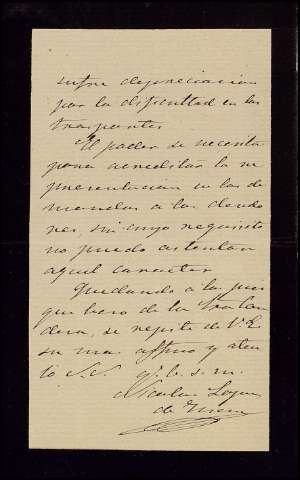 sufre depreciacion
por la dificultad en los
traspantes.
El poder se necesita
para acreditar la re
presentacion en las de
mandas a los deudo
res, sin cuyo requisito
no puedo ostentar
aquel caracter
Quedando a los pies
que beso de la
se repite de V. E.
su mas affmo y aten
to S. S. q. b. s. m.
Nicolas
de